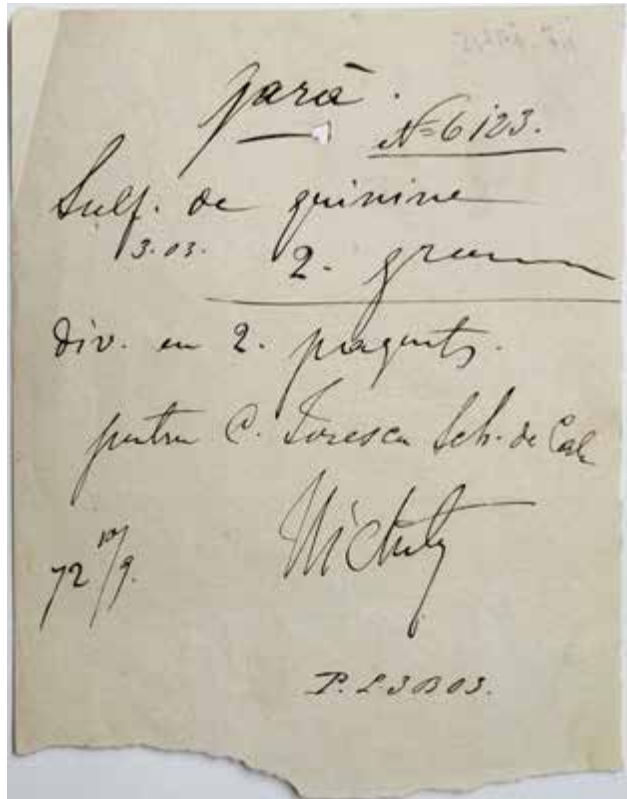 gară.
N=6123.
Sulf. de quinine
3.03. 2. gram
div. en 2. paquets.
pentru C. Ionescu Sch. de
72 10/9.
P. L 3 B 03.